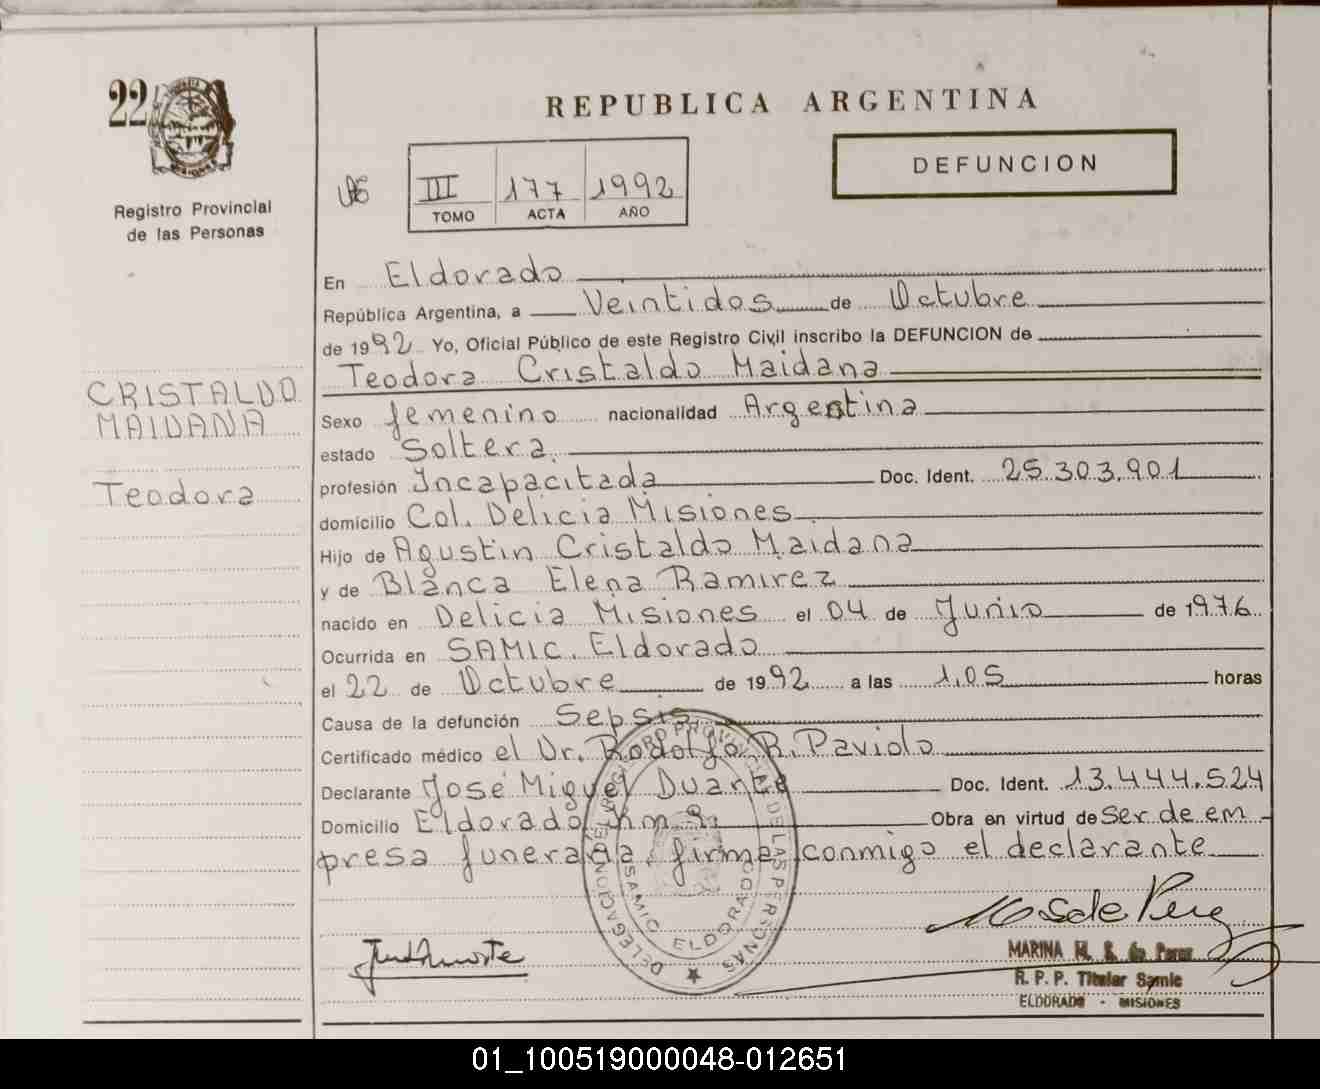 22
Registro Provincial
de las Personas
REPUBLICA ARGENTINA
DEFUNCION
III 177 1992
TOMO ACTA AÑO
En Eldorado
República Argentina, a Veintidos de Octubre
de 1992 Yo, Oficial Público de este Registro Civil inscribo la DEFUNCION de
Teodora Cristaldo Maidana
CRISTALDO
MAIDANA
Teodora
Sexo femenino nacionalidad Argentina
estado Soltera.
profesión Incapacitada Doc. Ident. 25.303.901
domicilio Col. Delicia Misiones
Hijo de Agustin Cristaldo Maidana
y de Blanca Elena Ramirez
nacido en Delicia Misiones el 04 de Junio de 1976
Ocurrida en SAMIC. Eldorado
el 22 de Octubre de 1992 a las 1.05 horas
Causa de la defunción Sepsis
Certificado médico el Dr. Rodolfo R. Paviolo
Declarante José Miguel Duarte Doc. Ident. 13.444.524
Domicilio Eldorado km 9. Obra en virtud de ser de em-
presa funeraria, firma conmigo el declarante
DELEGACION DEL REGISTRO PROVINCIAL DE LAS PERSONAS
SAMIC ELDORADO
MARINA
R. P. P. Titular Samic
ELDORADO - MISIONES
01_100519000048-012651